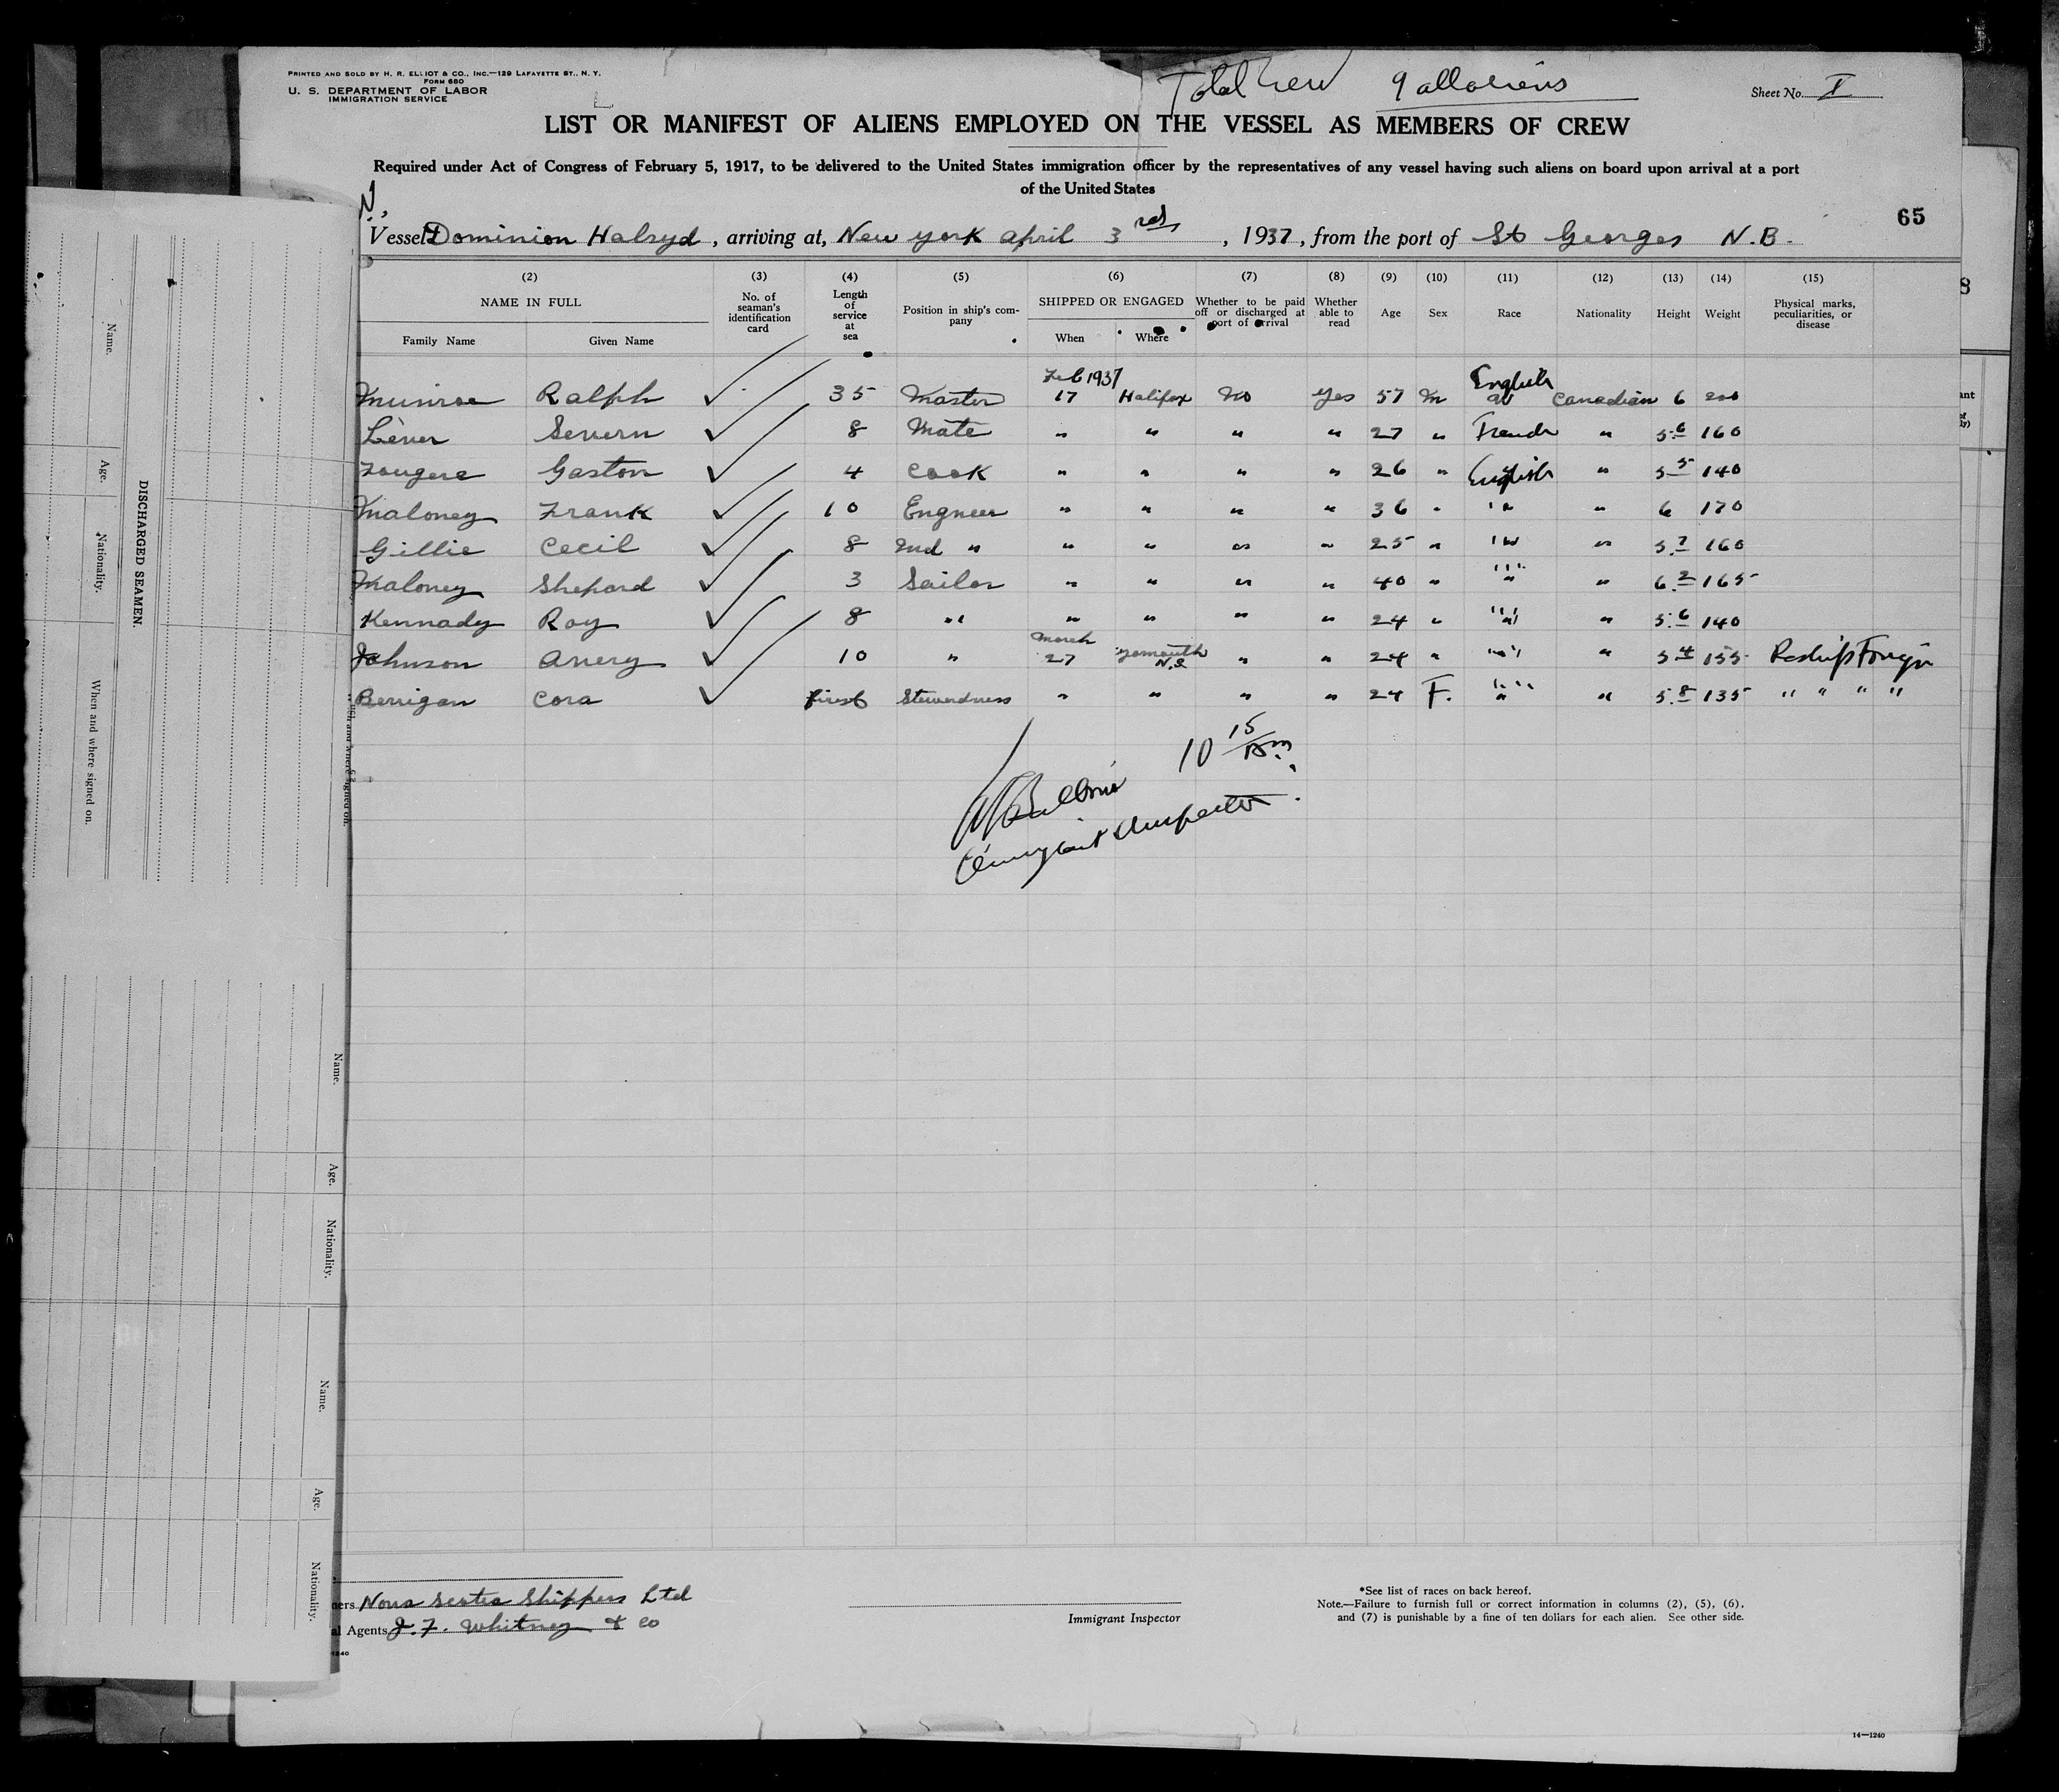 PRINTED AND SOLD BY H. R. ELLIOT & CO., INC.—129 LAFAYETTE ST., N. Y.
FORM 680
U. S. DEPARTMENT OF LABOR
IMMIGRATION SERVICE
Total Crew 9 all aliens
Sheet No. I
LIST OR MANIFEST OF ALIENS EMPLOYED ON THE VESSEL AS MEMBERS OF CREW
Required under Act of Congress of February 5, 1917, to be delivered to the United States immigration officer by the representatives of any vessel having such aliens on board upon arrival at a port
of the United States
65
Vessel Dominion Halsyd, arriving at, New york april 3rd, 1937, from the port of St Georges N.B.
(2) (3) (4) (5) (6) (7) (8) (9) (10) (11) (12) (13) (14) (15)
NAME IN FULL No. of seaman's identification card Length of service at sea Position in ship's company SHIPPED OR ENGAGED Whether to be paid off or discharged at port of arrival Whether able to read Age Sex Race Nationality Height Weight Physical marks, peculiarities, or disease
Family Name Given Name When Where
Feb 1937 English
Munroe Ralph 35 Master 17 Halifax No Yes 57 M Canadian 6 200
Lever Severn 8 Mate " " " " 27 " French " 5.6 160
Fougere Gaston 4 Cook " " " " 26 " English " 5 5 140
Maloney Frank 10 Engneer " " " " 36 " " " 6 170
Gillie Cecil 8 2nd " " " " " 25 " " " 5.7 160
Maloney Shepard 3 Sailor " " " " 40 " " " 6.2 165
Kennady Roy 8 " " " " " 24 " " " 5.6 140
March Yarmouth
Johnson Avery 10 " 27 N.S " " 24 " " " 5 4 155 Reships Foreign
Berrigan Cora first Stewardness " " " " 24 F. " " 5.8 135 " " " "
10 15/Am
Immigrant Inspector
ners Nova Scotia Shippers Ltd
al Agents J. F. Whitney & Co
1240
Immigrant Inspector
*See list of races on back hereof.
Note.—Failure to furnish full or correct information in columns (2), (5), (6),
and (7) is punishable by a fine of ten dollars for each alien. See other side.
14—1240
DISCHARGED SEAMEN.
Name.
Age.
Nationality.
When and where signed on.
Name.
Age.
Nationality.
Name.
Age.
Nationality.